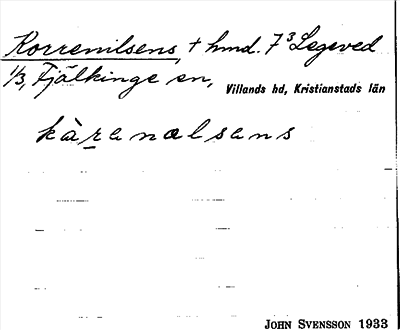 Korrenilsens, + hmd. 7³ Legeved
1/3, Fjälkinge sn, Villands hd, Kristianstads län
kàrenælsens
JOHN SVENSSON 1933